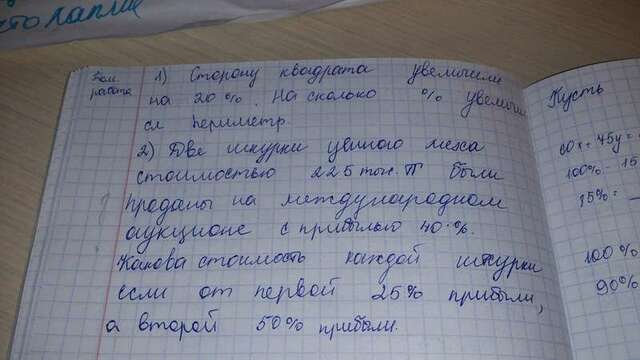 Дом. работа
1) Сторону квадрата увеличили
на 20%. На сколько % увеличи
ся периметр.
2) Две шкурки ценного меха
стоимостью 225 тыс. Т были
проданы на международном
аукционе с прибылью 40%.
Какова стоимость каждой шкурки
если от первой 25% прибыли,
а второй 50% прибыли.
Пусть
60x + 45y =
100% - 15
35% =
100%
90%